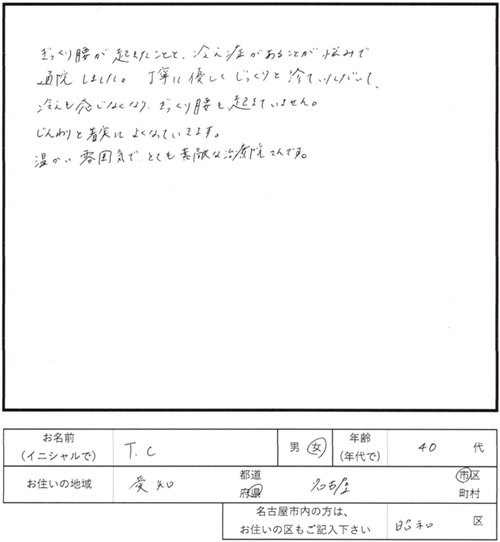 ぎっくり腰が起きたことと、冷え症があることが悩みで
通院しました。丁寧に優しくじっくりと治ていただいて、
冷えも感じなくなり、ぎっくり腰も起きていません。
じんわりと着実によくなっていきます。
温かい雰囲気でとても素敵な治療院さんです。
お名前
(イニシャルで)
T.C
男 女
年齢
(年代で)
40 代
お住いの地域
愛知
都道
府県
名古屋
市区
町村
名古屋市内の方は、
お住いの区もご記入下さい
昭和 区